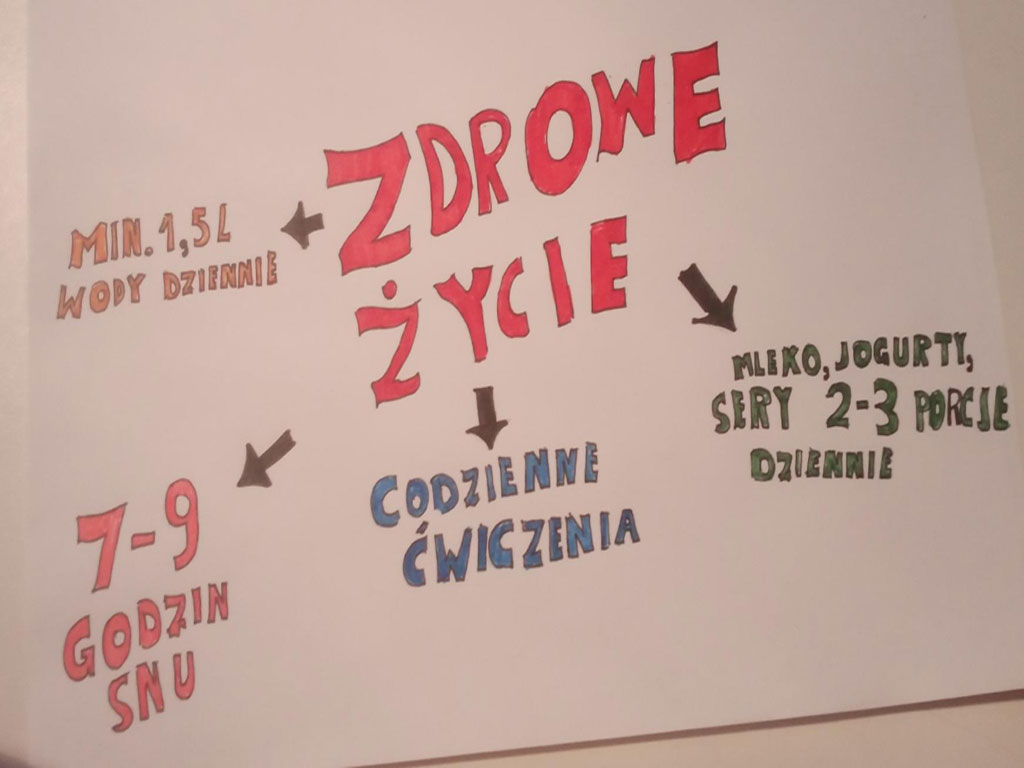 ZDROWE
ŻYCIE
MIN. 1,5 L
WODY DZIENNIE
MLEKO, JOGURTY,
SERY 2-3 PORCJE
DZIENNIE
CODZIENNE
ĆWICZENIA
7-9
GODZIN
SNU